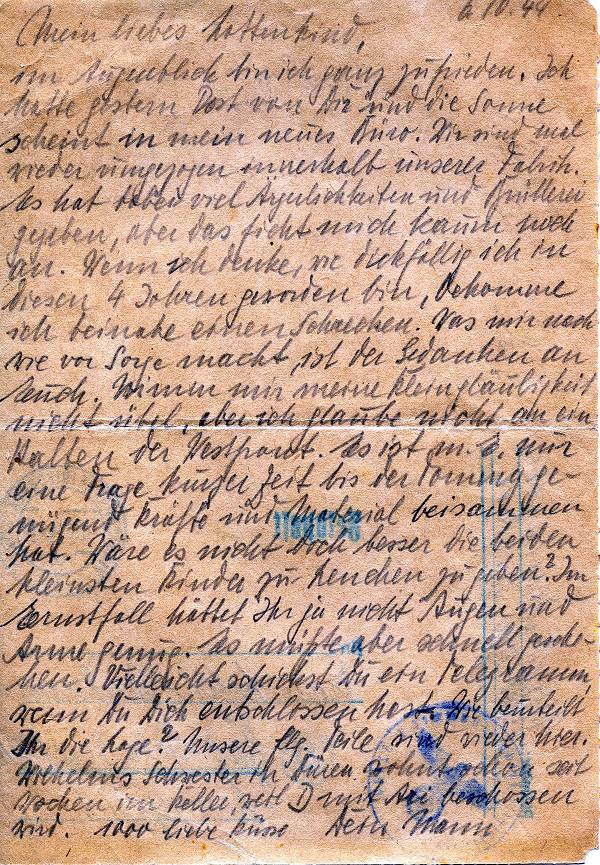 6.10.44
Mein liebes Lottenkind,
im Augenblick bin ich ganz zufrieden. Ich
hatte gestern Post von Dir und die Sonne
scheint in mein neues Büro. Wir sind mal
wieder umgezogen innerhalb unserer Fabrik.
Es hat dabei viel Ärgerlichkeiten und Brüllerei
gegeben, aber das ficht mich kaum noch
an. Wenn ich denke, wie dickfällig ich in
diesen 4 Jahren geworden bin, bekomme
ich beinahe einen Schrecken. Was mir nach
wie vor Sorge macht, ist der Gedanken an
Euch. Nimm mir meine Kleingläubigkeit
nicht übel, aber ich glaube nicht an ein
Halten der Westfront. Es ist m. E. nur
eine Frage kurzer Zeit bis der Tommy ge-
nügend Kräfte und Material beisammen
hat. Wäre es nicht doch besser die beiden
kleinsten Kinder zu Lenchen zu geben? Im
Ernstfall hättet Ihr ja nicht Augen und
Arme genug. Es müßte aber schnell gesche-
hen. Vielleicht schickst Du ein Telegramm,
wenn Du Dich entschlossen hast. Wie beurteilt
Ihr die Lage? Unsere flg. Teile sind wieder hier.
Wilhelms Schwester in Düren wohnt schon seit
Wochen im Keller, weil D mit Ari beschossen
wird. 1000 liebe Küsse Dein Mann